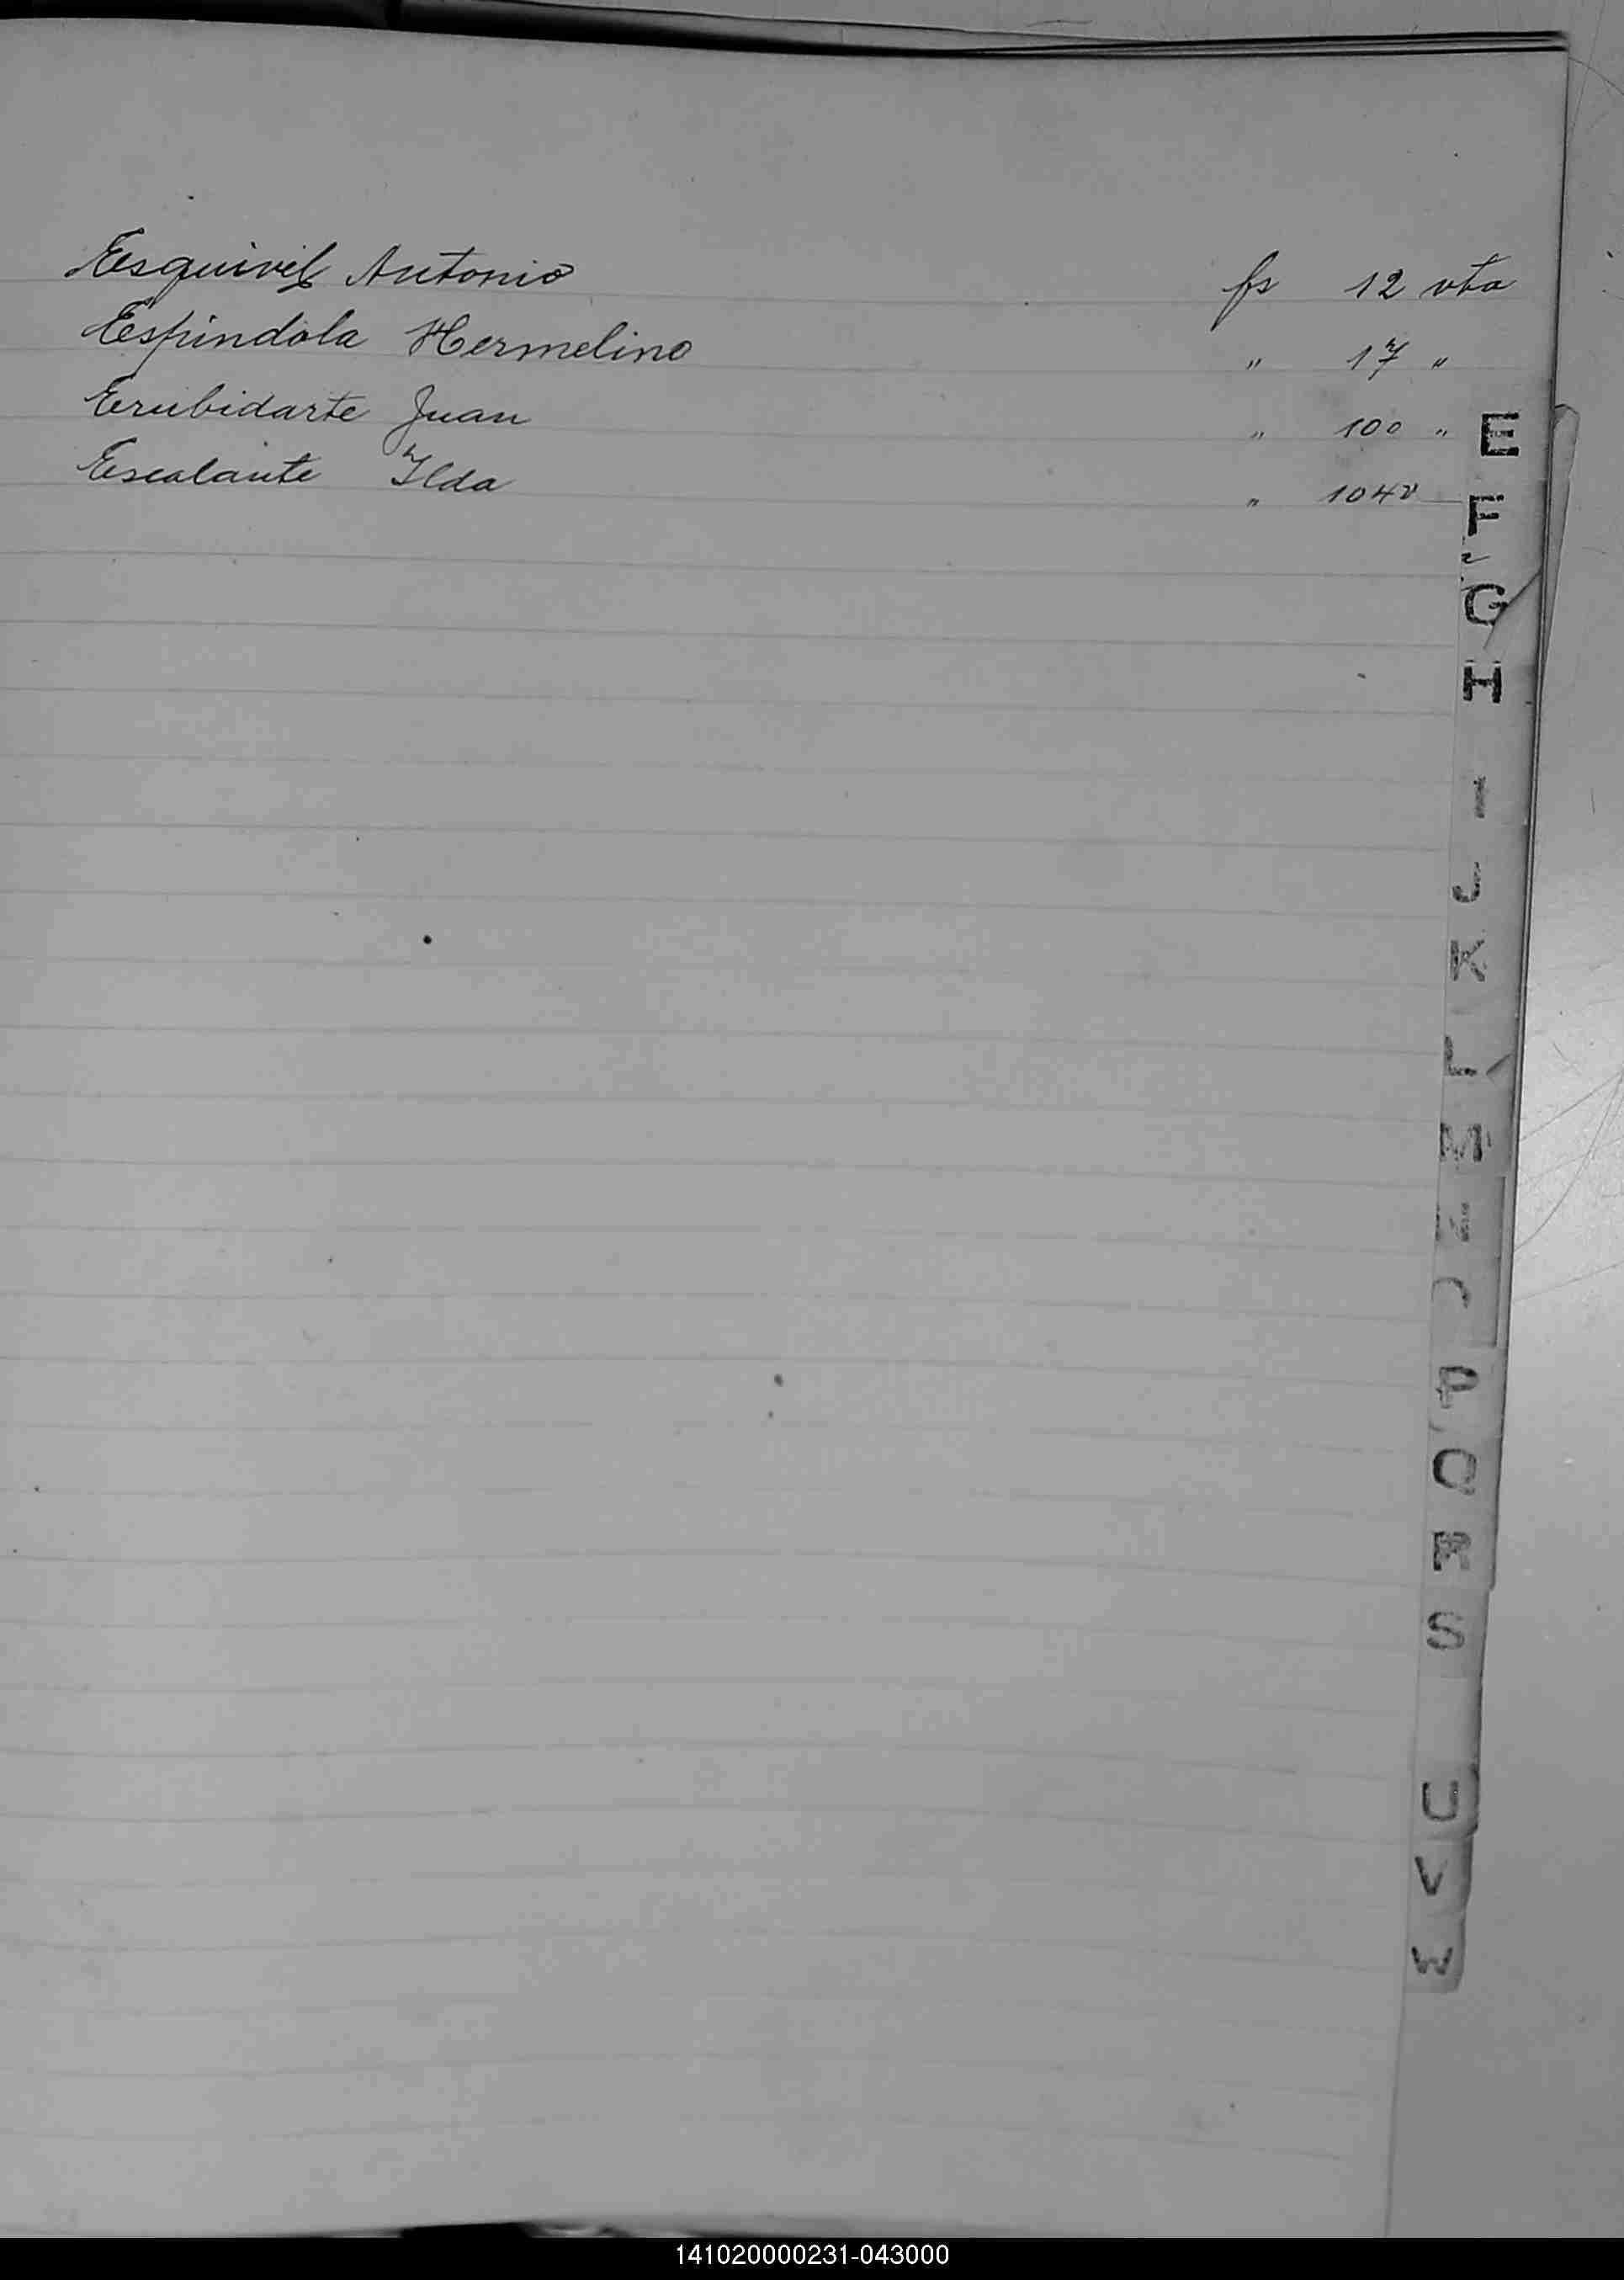 Esquivel Antonio fs 12 vta
Espindola Hermelino " 17 "
Erubidarte Juan " 100 "
Escalante Ilda " 104 v
E
F
G
H
I
J
K
L
M
N
P
Q
R
S
U
V
W
141020000231-043000